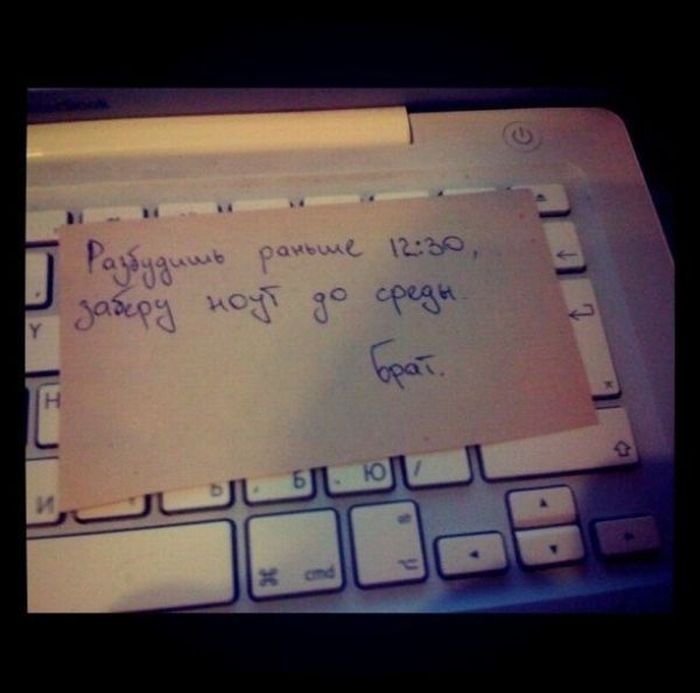 Разбудишь раньше 12:30,
заберу ноут до среды.
Брат.
Y
Н
И Ь , Б . Ю /
⌘ cmd ⌥